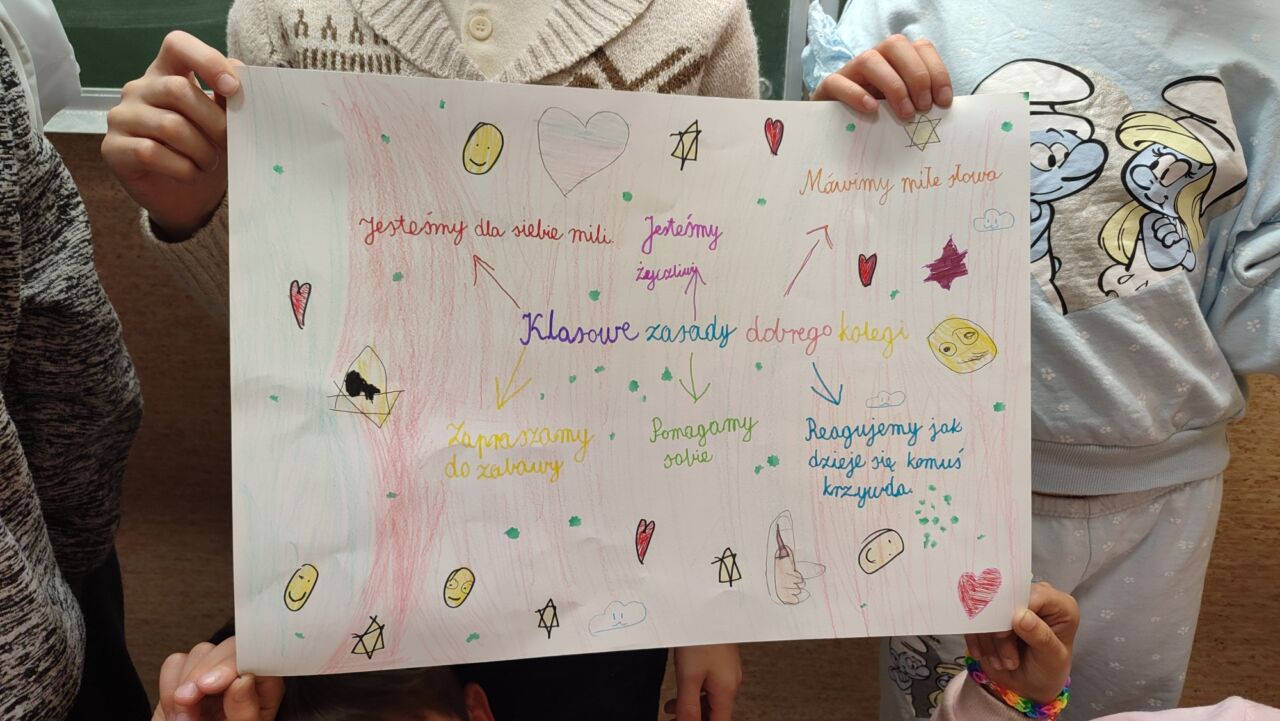 Mówimy miłe słowa
Jesteśmy dla siebie mili.
Jesteśmy
życzliwi
Klasowe zasady dobrego kolegi
Zapraszamy
do zabawy
Pomagamy
sobie
Reagujemy jak
dzieje się komuś
krzywda.